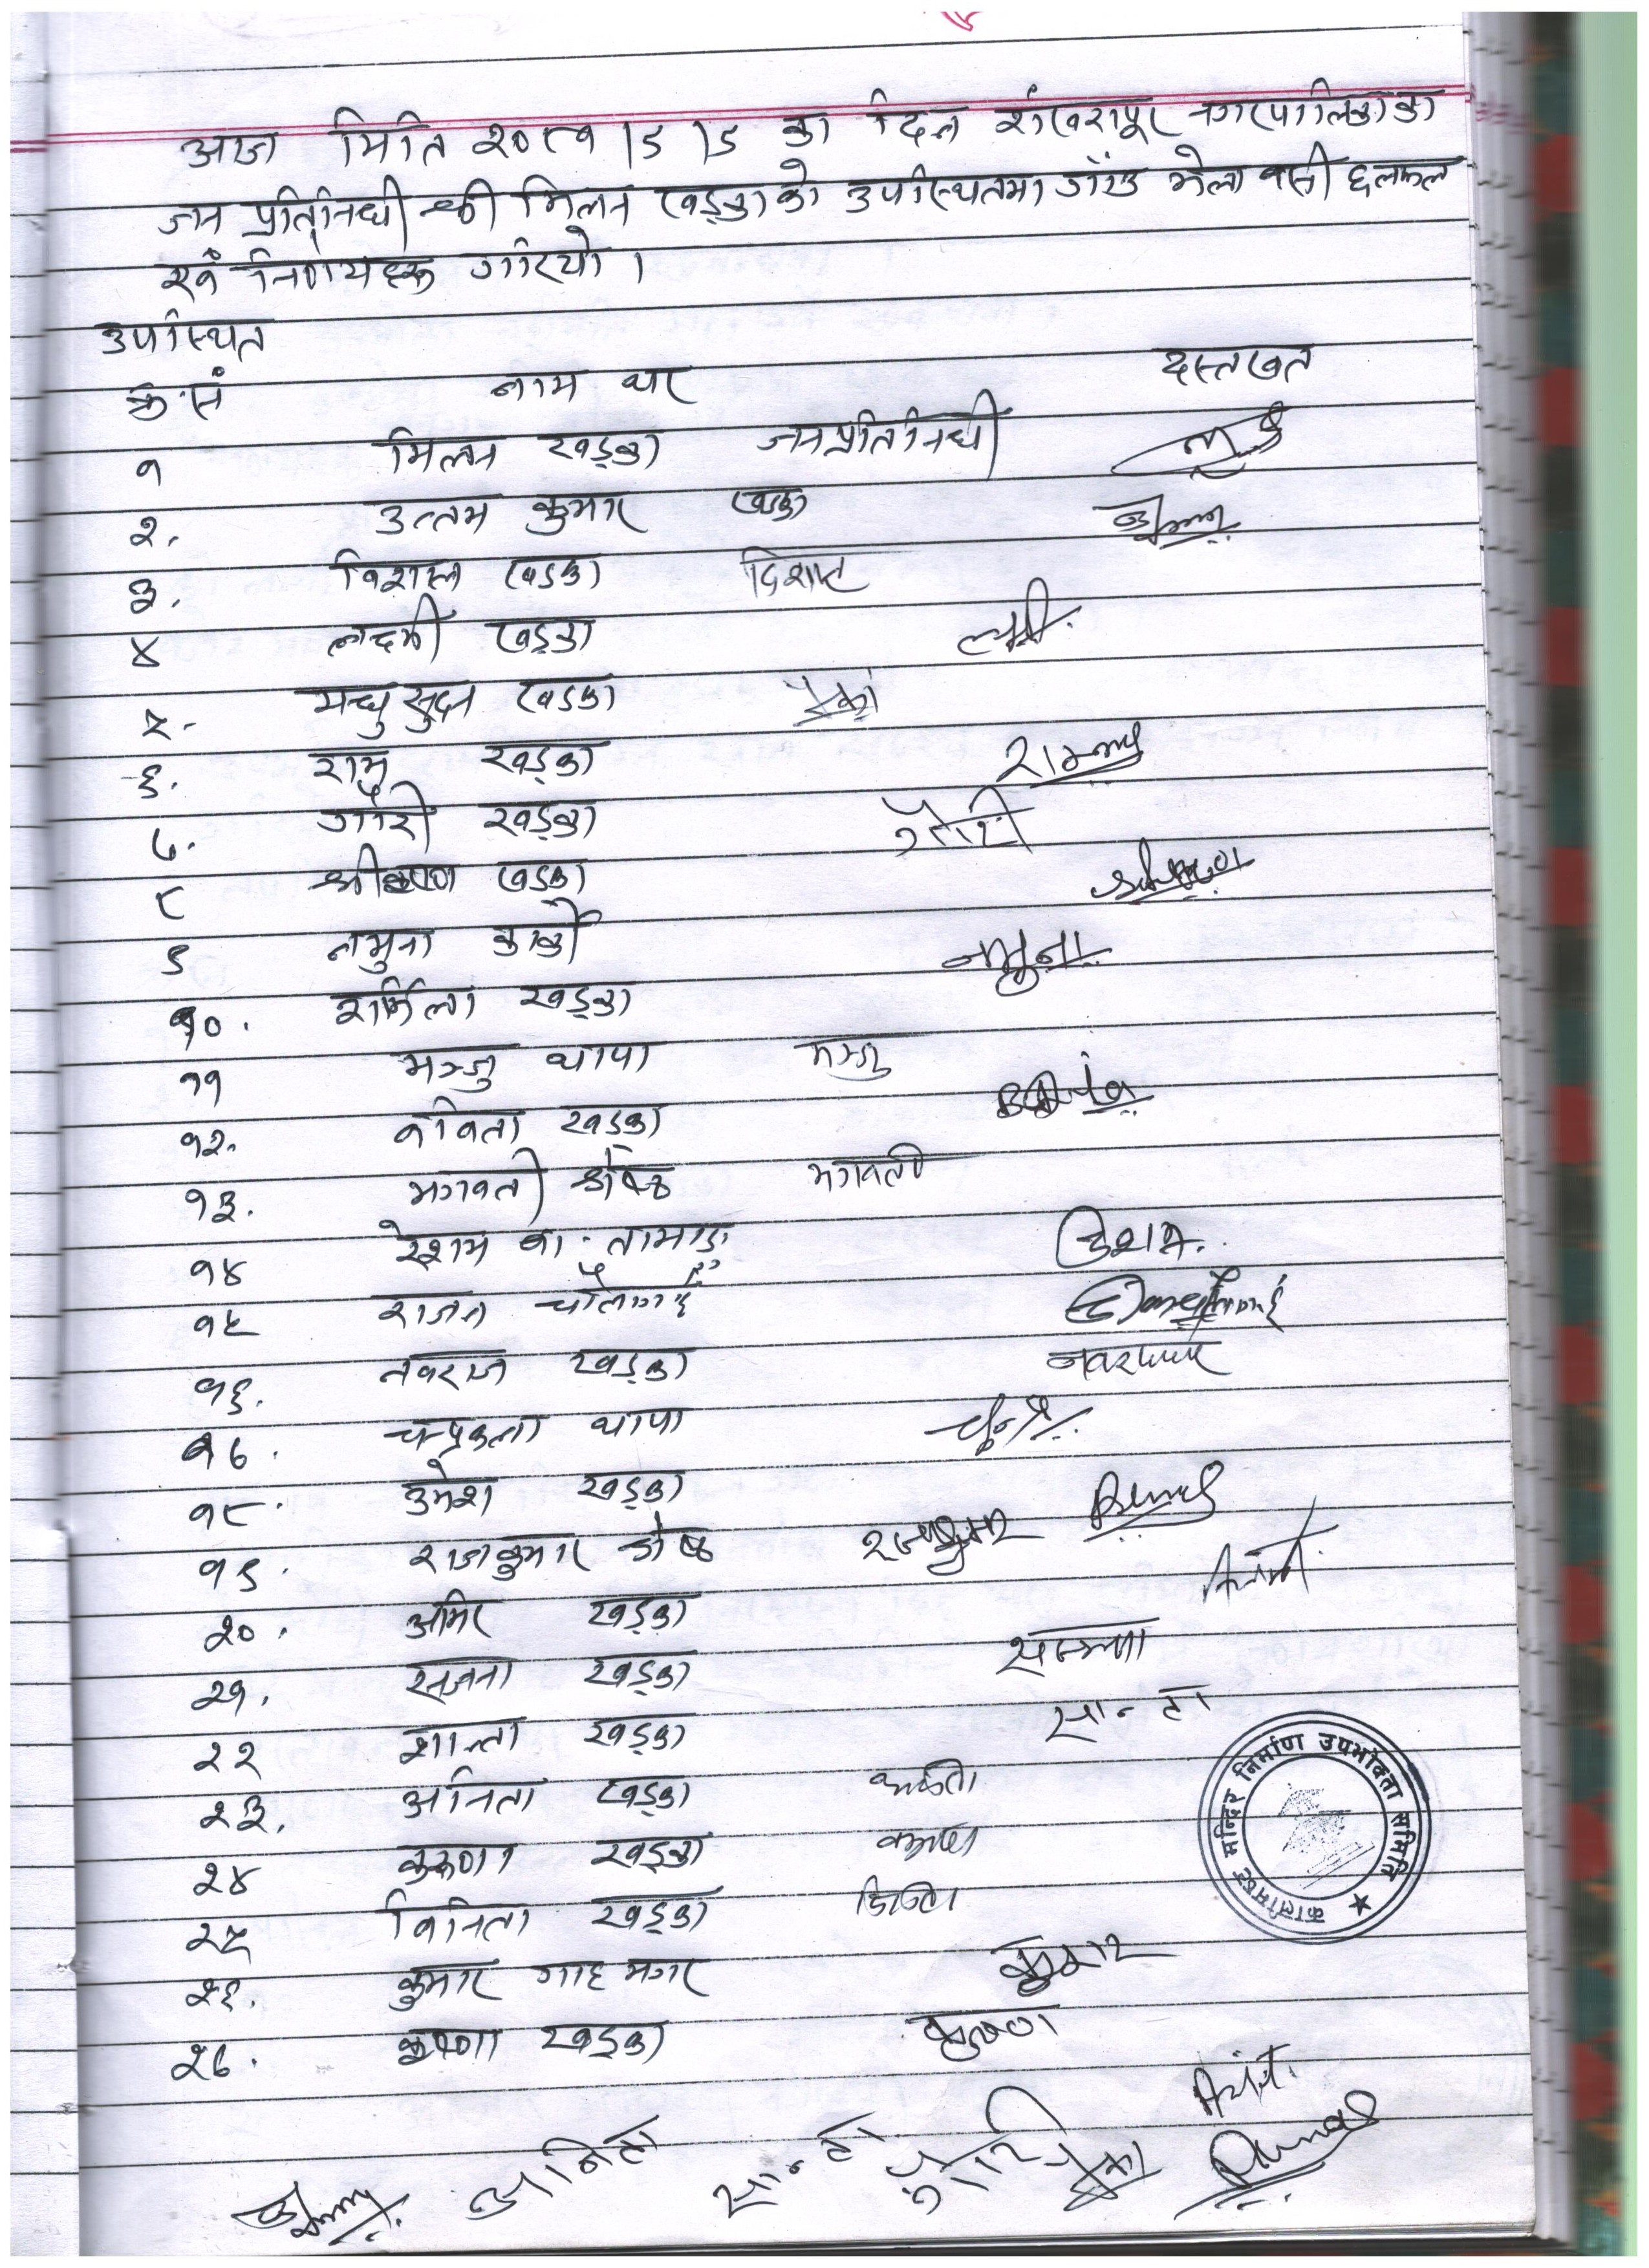 आज मिति २०८१।९।९ का दिन शंखरापूर नगरपालिकाका
जन प्रतिनिधी श्री मिलन खड्काको उपस्थितमा गाँउ भेला बसी छलफल
एवं निर्णयहरू गरियो ।
उपस्थित
क्र.सं नाम थर दस्तखत
१ मिलन खड्का जनप्रतिनिधी
२. उत्तम कुमार खड्का
३. विशाल खड्का
४ लक्ष्मी खड्का लक्ष्मी.
५. मधु सुदन खड्का
६. रामु खड्का
७. गौरी खड्का गौरी
८ श्रीकृष्ण खड्का
९ नमुना कार्की नमुना
१०. शर्मिला खड्का
११ मञ्जु थापा मञ्जु
१२. बबिता खड्का
१३. भगवती श्रेष्ठ भगवती
१४ रेशम ब. तामाङ रेशम.
१५ राजन चौलागाईं
१६. नवराज खड्का नवराज
१७. चन्द्रकला थापा
१८. उमेश खड्का
१९. राजकुमार श्रेष्ठ राजकुमार
२०. अमिर खड्का
२१. सजना खड्का
२२ शान्ता खड्का सान्टा
२३. अनिता खड्का
२४ करुणा खड्का
२५ विनिता खड्का
२६. कुमार गाहा मगर कुमार
२७. कृष्णा खड्का कृष्ण
कालीमाई मन्दिर निर्माण उपभोक्ता समिति
अनिता सान्टा गौरी